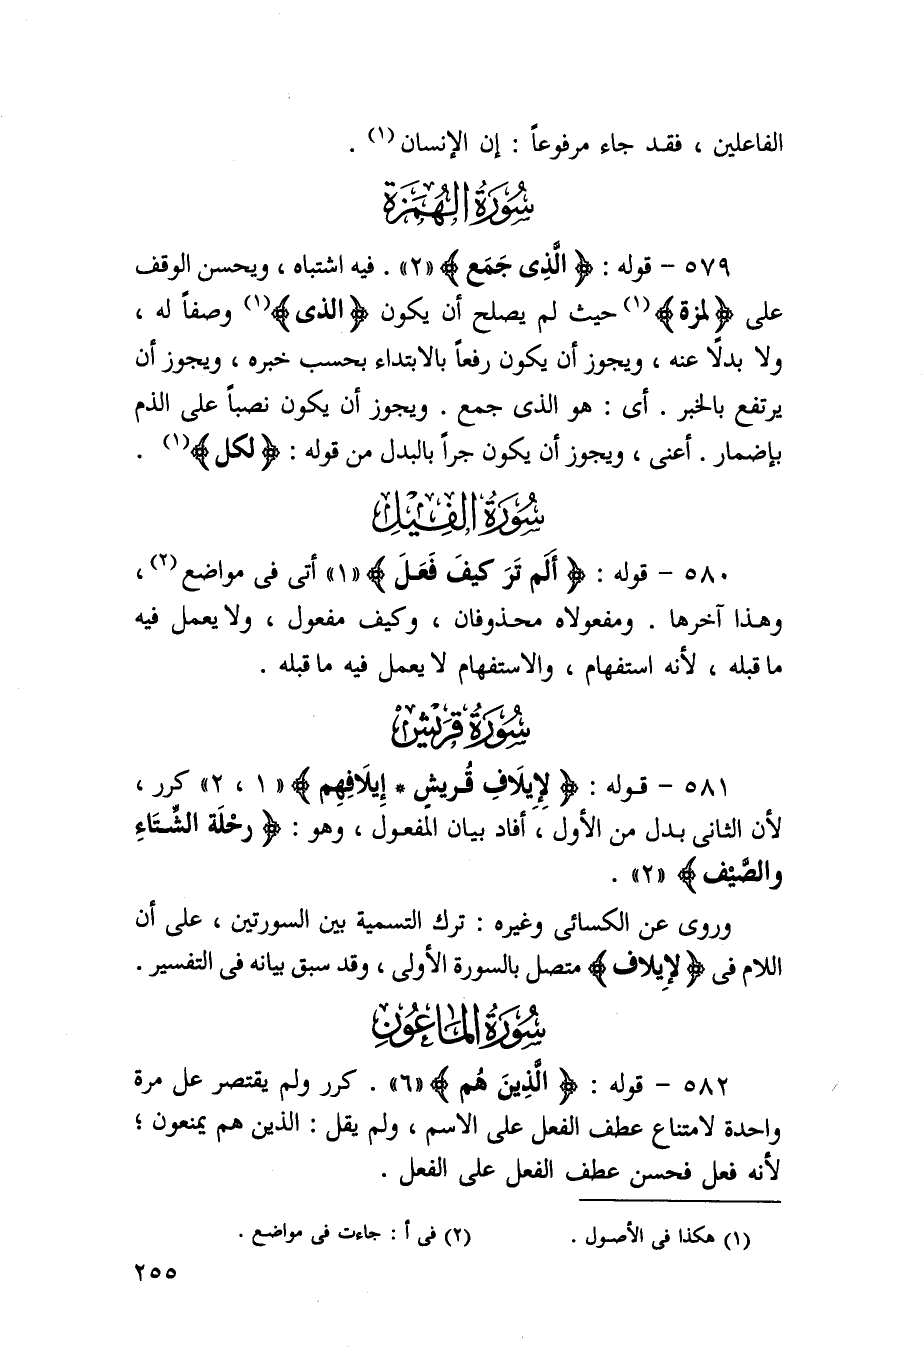 الفاعلين ، فقد جاء مرفوعاً : إن الإنسان(١) .
سُورَةُ الهُمَزة
٥٧٩ - قوله : ﴿ الَّذِى جَمَع ﴾ «٢» . فيه اشتباه ، ويحسن الوقف
على ﴿ لمزة ﴾(١) حيث لم يصلح أن يكون ﴿ الذى ﴾(١) وصفاً له ،
ولا بدلًا عنه ، ويجوز أن يكون رفعاً بالابتداء بحسب خبره ، ويجوز أن
يرتفع بالخبر . أى : هو الذى جمع . ويجوز أن يكون نصباً على الذم
بإضمار . أعنى ، ويجوز أن يكون جراً بالبدل من قوله : ﴿ لكل ﴾(١) .
سُورَةُ الفِيل
٥٨٠ - قوله : ﴿ أَلَم تَرَ كيفَ فَعَلَ ﴾ «١» أتى فى مواضع(٢) ،
وهذا آخرها . ومفعولاه محذوفان ، وكيف مفعول ، ولا يعمل فيه
ما قبله ، لأنه استفهام ، والاستفهام لا يعمل فيه ما قبله .
سُورَةُ قُرَيْشٍ
٥٨١ - قوله : ﴿ لِإِيلَافِ قُريشٍ * إِيلَافِهِم ﴾ « ١ ، ٢» كرر ،
لأن الثانى بدل من الأول ، أفاد بيان المفعول ، وهو : ﴿ رِحْلَة الشِّتَاءِ
والصَّيْف ﴾ «٢» .
وروى عن الكسائى وغيره : ترك التسمية بين السورتين ، على أن
اللام فى ﴿ لإِيلاف ﴾ متصل بالسورة الأولى ، وقد سبق بيانه فى التفسير .
سُورَةُ المَاعُون
٥٨٢ - قوله : ﴿ الَّذِينَ هُم ﴾ «٦» . كرر ولم يقتصر عل مرة
واحدة لامتناع عطف الفعل على الاسم ، ولم يقل : الذين هم يمنعون ؛
لأنه فعل فحسن عطف الفعل على الفعل .
(١) هكذا فى الأصول .
(٢) فى أ : جاءت فى مواضع .
٢٥٥